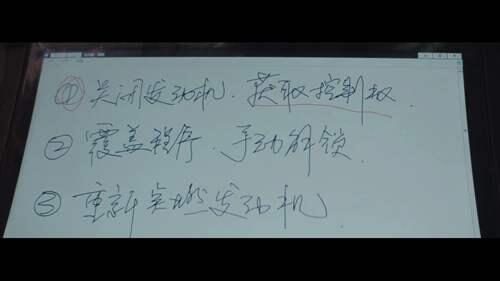 ① 关闭发动机. 获取控制权.
② 覆盖程序. 手动解锁.
③ 重新点燃发动机